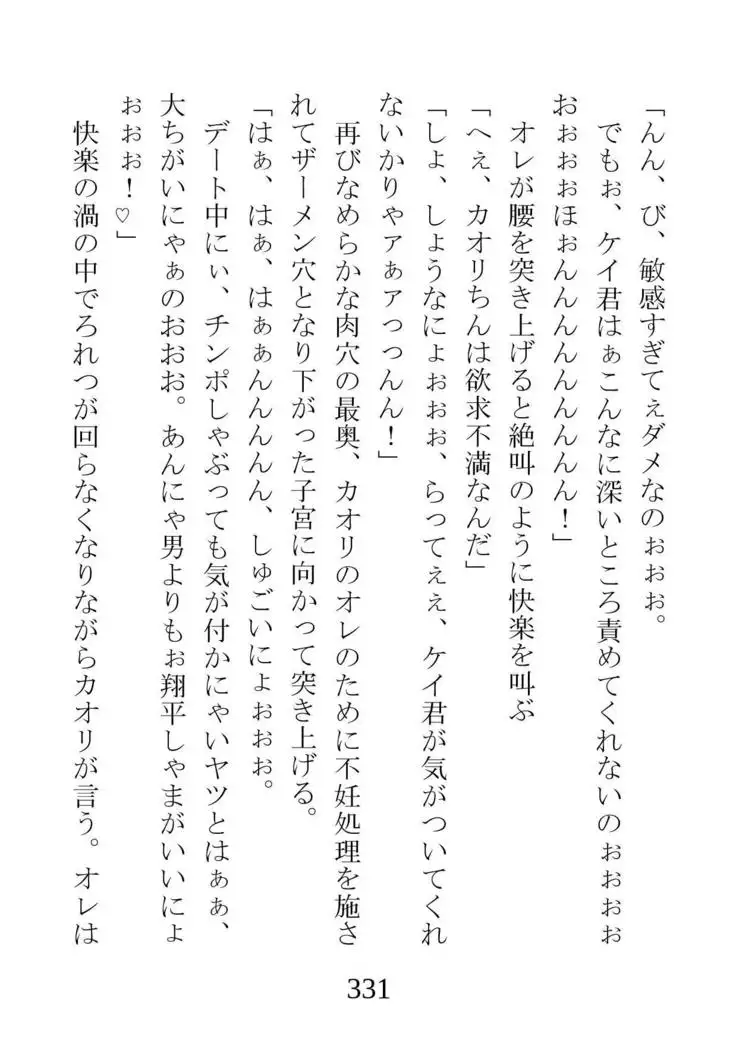 「んん、び、敏感すぎてぇダメなのぉぉぉ。
でもぉ、ケイ君はぁこんなに深いところ責めてくれないのぉぉぉぉ
おぉぉぉほぉんんんんんんんん！」
オレが腰を突き上げると絶叫のように快楽を叫ぶ
「へぇ、カオリちんは欲求不満なんだ」
「しょ、しょうなにょぉぉぉ、らってぇぇ、ケイ君が気がついてくれ
ないかりゃァぁァっっんん！」
再びなめらかな肉穴の最奥、カオリのオレのために不妊処理を施さ
れてザーメン穴となり下がった子宮に向かって突き上げる。
「はぁ、はぁ、はぁぁんんんんん、しゅごいにょぉぉぉ。
デート中にぃ、チンポしゃぶっても気が付かにゃいヤツとはぁぁ、
大ちがいにゃぁのおおお。あんにゃ男よりもぉ翔平しゃまがいいにょ
ぉぉぉ！♡」
快楽の渦の中でろれつが回らなくなりながらカオリが言う。オレは
331